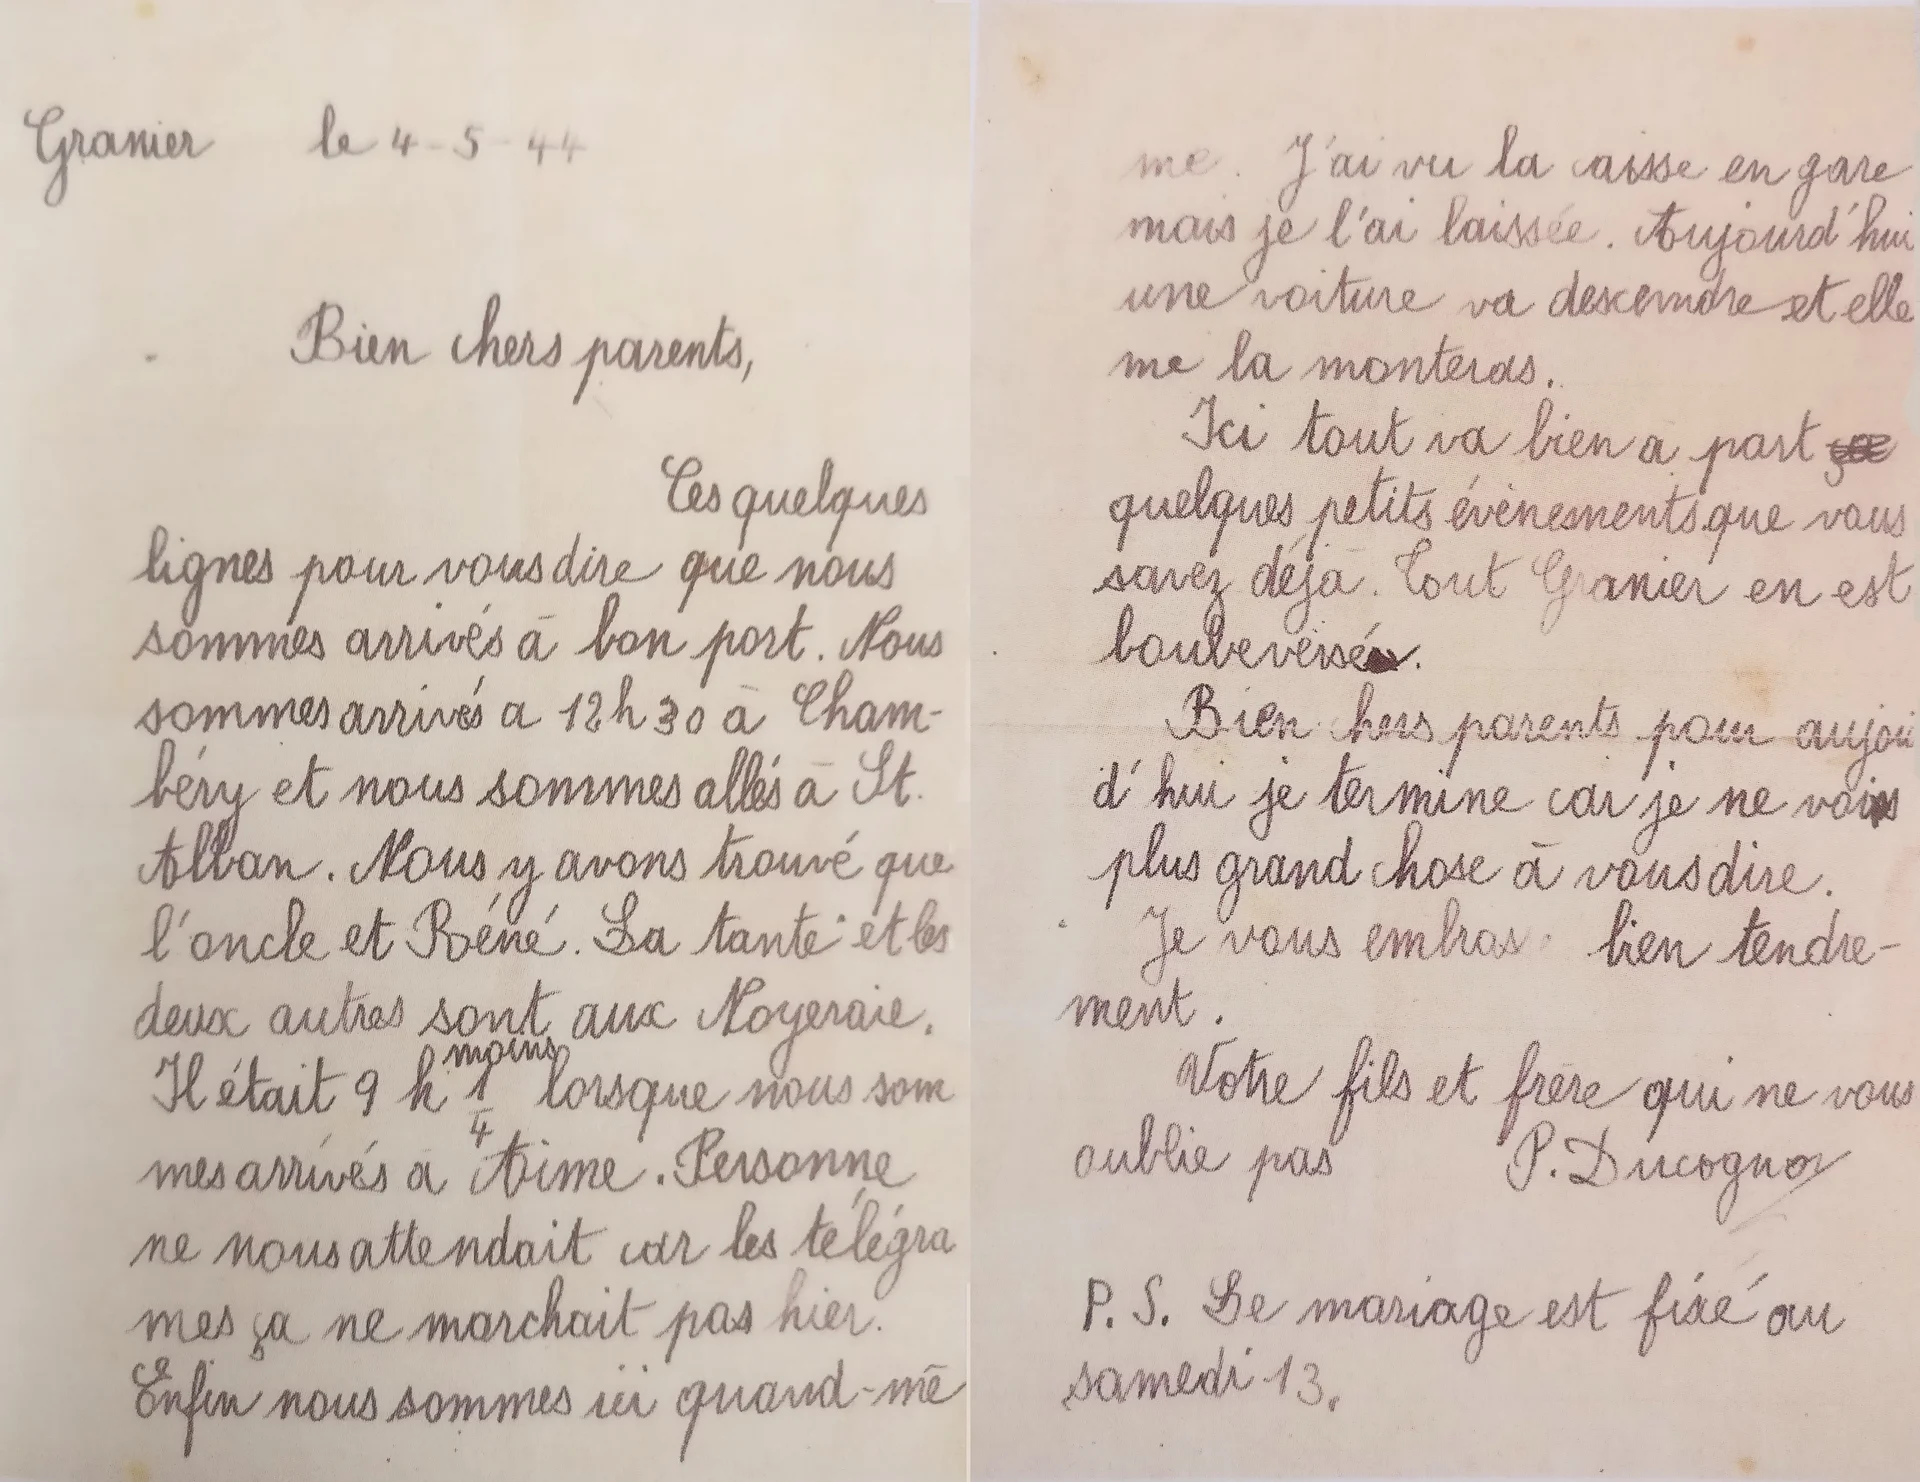 Granier le 4-5-44
Bien chers parents,
Ces quelques
lignes pour vous dire que nous
sommes arrivés à bon port. Nous
sommes arrivés a 12h30 à Cham-
béry et nous sommes allés à St.
Alban. Nous y avons trouvé que
l'oncle et Réné. La tante et les
deux autres sont aux Noyeraie.
Il était 9 h moins 1/4 lorsque nous som
mes arrivés à Aime. Personne
ne nous attendait car les télégra
mes ça ne marchait pas hier.
Enfin nous sommes ici quand-mê
me. J'ai vu la caisse en gare
mais je l'ai laissée. Aujourd'hui
une voiture va descendre et elle
me la monteras.
Ici tout va bien à part
quelques petits évènements que vous
savez déjà. Tout Granier en est
bouleversé.
Bien chers parents pour aujou
d'hui je termine car je ne vois
plus grand chose à vous dire.
Je vous embras bien tendre-
ment.
Votre fils et frère qui ne vous
oublie pas P. Ducognon
P. S. Le mariage est fixé au
samedi 13.